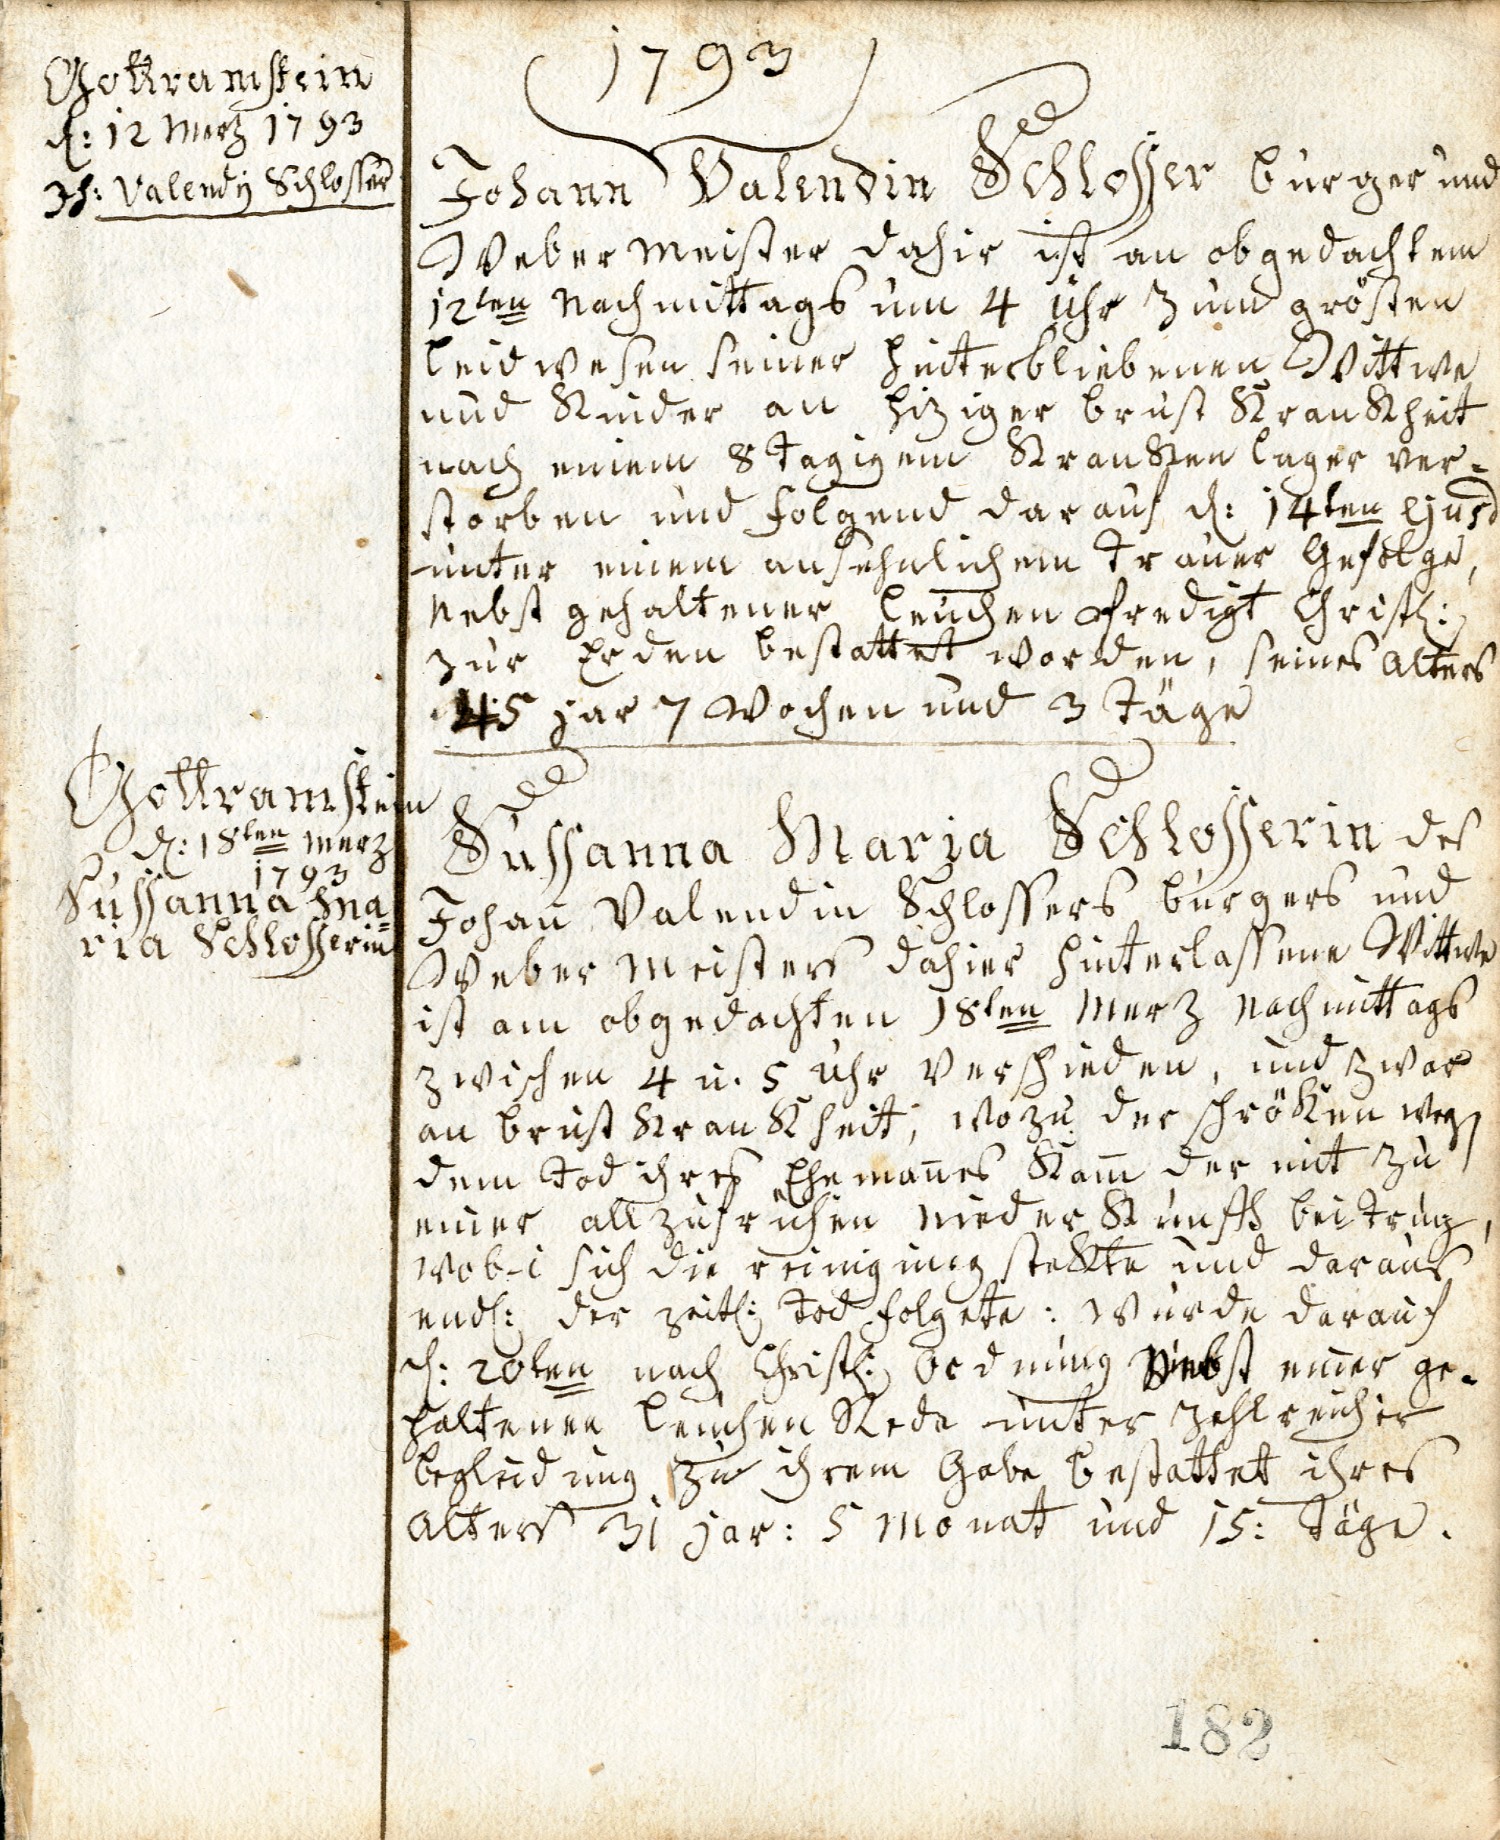 1793
Gottramstein
d: 12 Merz 1793
Jh: Valendy Schlosser
Johann Valendin Schlosser burger und
Weber Meister dahir ist an obgedachtem
12ten Nachmittags um 4 Uhr zum grösten
leidwesen seiner hinterbliebenen Wittwe
und Kinder an hiziger brust Krankheit
nach einem 8 tagigem Kranken lager ver-
storben und folgend darauf d: 14ten ejusd
unter einem ansehnlichem trauer Gefolge,
Nebst gehaltener leuchen Predigt Christl:
zur Erden bestattet worden, seines Alters
45 jar 7 Wochen und 3 täge
Gottramstein
d: 18ten Merz
1793
Sussanna Ma=
ria Schlosserin
Sussanna Maria Schlosserin des
Johan̄ Valendin Schlossers burgers und
Weber Meisters dahier hinterlassene Wittwe
ist am obgedachten 18ten Merz Nachmittags
zwischen 4 u. 5 Uhr verschieden, und zwar
an brust Krankheit, wozu der schröken weg
dem Tod ihres Eheman̄es Kam̄ der mit zu
einer allzufrühen niederkunfth beitrug,
wobei sich die reinigung stekte und daraus
endl: der zeitl: Tod folgete: Wurde darauf
d: 20ten nach Christl: ordnung Nebst einer ge-
haltenen leuchen Rede unter zehlreicher
begleidung zu ihrem Grabe bestattet ihres
Alters 31 jar: 5 Monat und 15: täge.
182